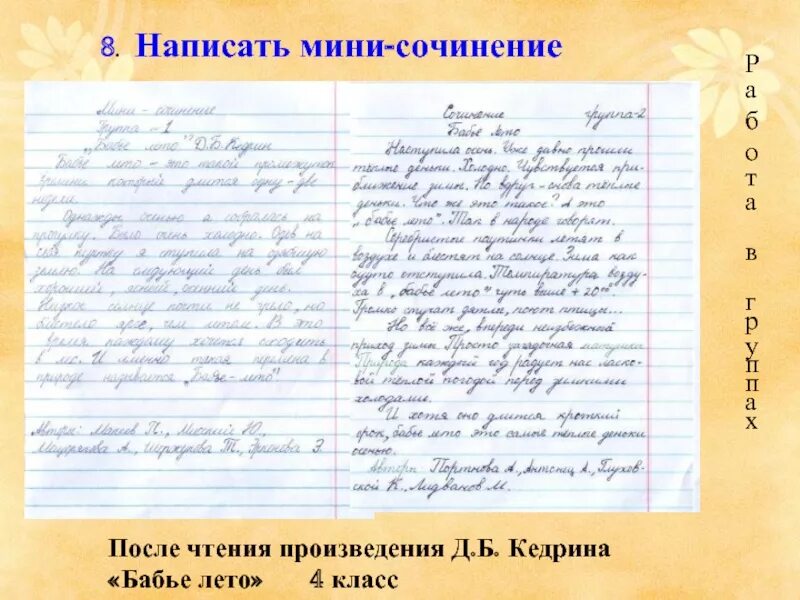 8. Написать мини-сочинение
Мини - сочинение
Группа - 1
„Бабье лето" Д.Б.Кедрин
Бабье лето - это такой промежуток
времени который длится одну-две
недели.
Однажды осенью я собралась на
прогулку. Было очень холодно. Одев на
себя куртку я ступила на
землю. На следующий день был
хороший, ясный, осенний день.
солнце почти не грело, но
блестело ярче, чем летом. В это
время каждому хочется сходить
в лес. И именно такая перемена в
природе называется „Бабье-лето"
Авторы: Макеев П., Ю.,
А., Т., Э.
Сочинение группа-2
Бабье лето
Наступила осень. Уже давно прошли
тёплые деньки. Холодно. Чувствуется при-
ближение зимы. Но вдруг - снова тёплые
деньки. Что же это такое? А это
„бабье лето". Так в народе говорят.
Серебристые паутинки летят в
воздухе и блестят на солнце. Зима как
будто отступила. Температура возду-
ха в „бабье лето" чуть выше +20°.
Громко стучат дятлы, поют птицы...
Но всё же, впереди неизбежный
приход зимы. Просто загадочная
Природа каждый год радует нас ласко-
вой тёплой погодой перед зимними
холодами.
И хотя оно длится кроткий
срок, бабье лето это самые тёплые деньки
осенью.
Авторы Портнова А., А., Глухов-
ской К., М.
Работа в группах
После чтения произведения Д.Б. Кедрина
«Бабье лето» 4 класс